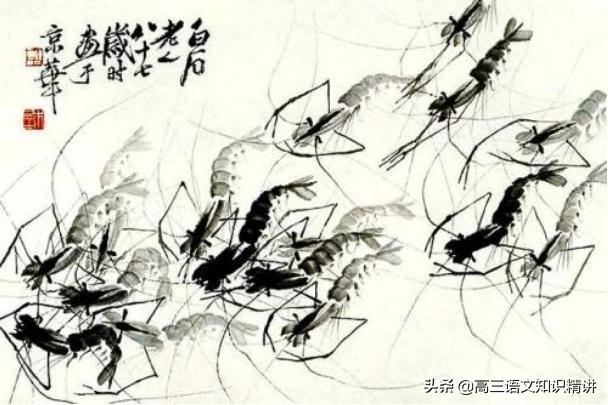 白石
老人
八十七
歲时
画于
京華
头条 @高三语文知识精讲